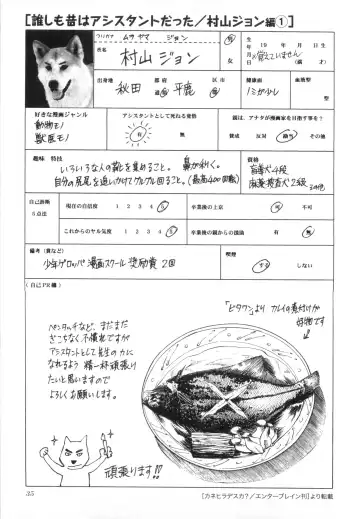 [誰しも昔はアシスタントだった／村山ジョン編①]
フリガナ ムラヤマ ジョン
氏名 村山 ジョン
男
女
生 19 年 月 日生
※覚えていません (満 才)
出身地 秋田 都 道 府 県 平鹿 区 市 郡
健康面 ノミが少し
血液型
好きな漫画ジャンル
動物モノ
獣医モノ
アシスタントとして残れる覚悟
有 無
親は、アナタが漫画家を目指す事を?
賛成 反対 その他
趣味 特技
いろいろな人の靴を集めること。鼻が利く。
自分の尻尾を追いかけてグルグル回ること。(最高400回転)
資格
盲導犬4段
麻薬捜査犬2級 その他
自己診断
5点法
現在の自信度 1 2 3 4 5
卒業後の上京 可 不可
これからのヤル気度 1 2 3 4 5
卒業後の親からの援助 有 無
備考(賞など)
少年ゲロッパ漫画スクール奨励賞 2回
喫煙
する しない
(自己PR欄)
ペンタッチなど、まだまだ
ぎこちなく不慣れですが
アシスタントとして先生の力に
なれるよう 精一杯頑張り
たいと思いますので
よろしくお願いします。
頑張ります!!!
「ビタワン」より カレイの煮付けが
好物です
35
[カネヒラデスカ?／エンターブレイン刊]より転載